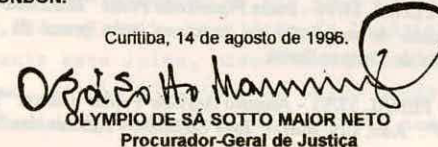 LONDON.
Curitiba, 14 de agosto de 1996.
OLYMPIO DE SÁ SOTTO MAIOR NETO
Procurador-Geral de Justiça